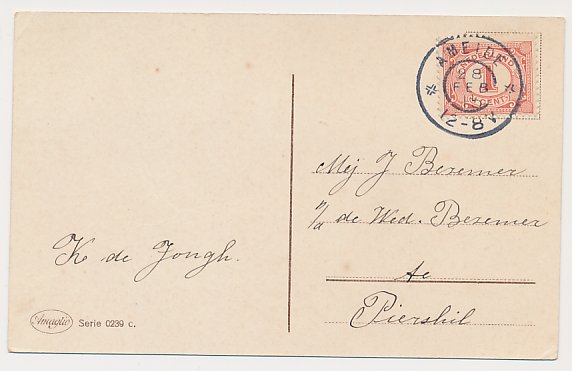 AMEIDE
28
FEB
12-8V
NEDERLAND
1
CENT
Mej J Bezemer
p/a de Wed. Bezemer
te
Piershil
K de Jongh.
Amaglio Serie 0239 c.